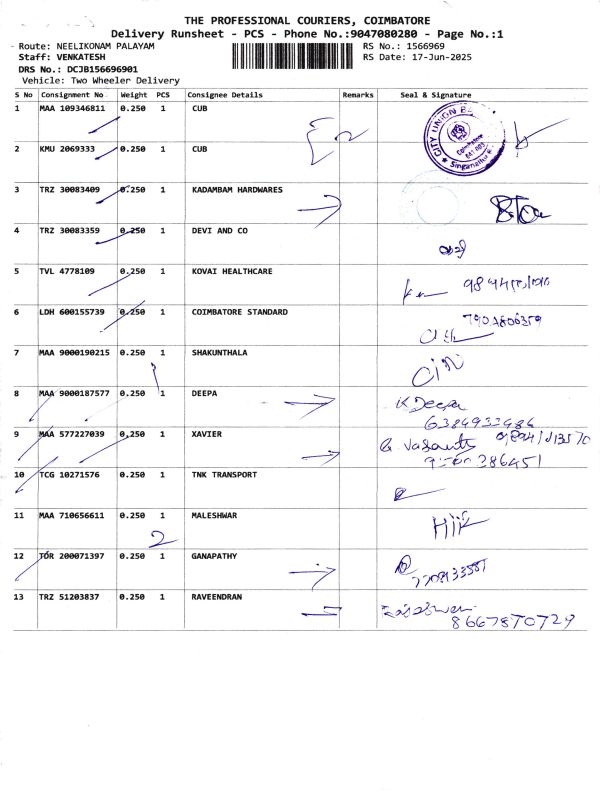 THE PROFESSIONAL COURIERS, COIMBATORE
Delivery Runsheet - PCS - Phone No.:9047080280 - Page No.:1
Route: NEELIKONAM PALAYAM RS No.: 1566969
Staff: VENKATESH RS Date: 17-Jun-2025
DRS No.: DCJB156696901
Vehicle: Two Wheeler Delivery
S No Consignment No Weight PCS Consignee Details Remarks Seal & Signature
1 MAA 109346811 0.250 1 CUB
CITY UNION Coimbatore
2 KMU 2069333 0.250 1 CUB
3 TRZ 30083409 0.250 1 KADAMBAM HARDWARES
4 TRZ 30083359 0.250 1 DEVI AND CO
5 TVL 4778109 0.250 1 KOVAI HEALTHCARE
6 LDH 600155739 0.250 1 COIMBATORE STANDARD
7 MAA 9000190215 0.250 1 SHAKUNTHALA
8 MAA 9000187577 0.250 1 DEEPA
K Deepa
6384933486
9 MAA 577227039 0.250 1 XAVIER
10 TCG 10271576 0.250 1 TNK TRANSPORT
11 MAA 710656611 0.250 1 MALESHWAR
2
12 TOR 200071397 0.250 1 GANAPATHY
13 TRZ 51203837 0.250 1 RAVEENDRAN
8667870729